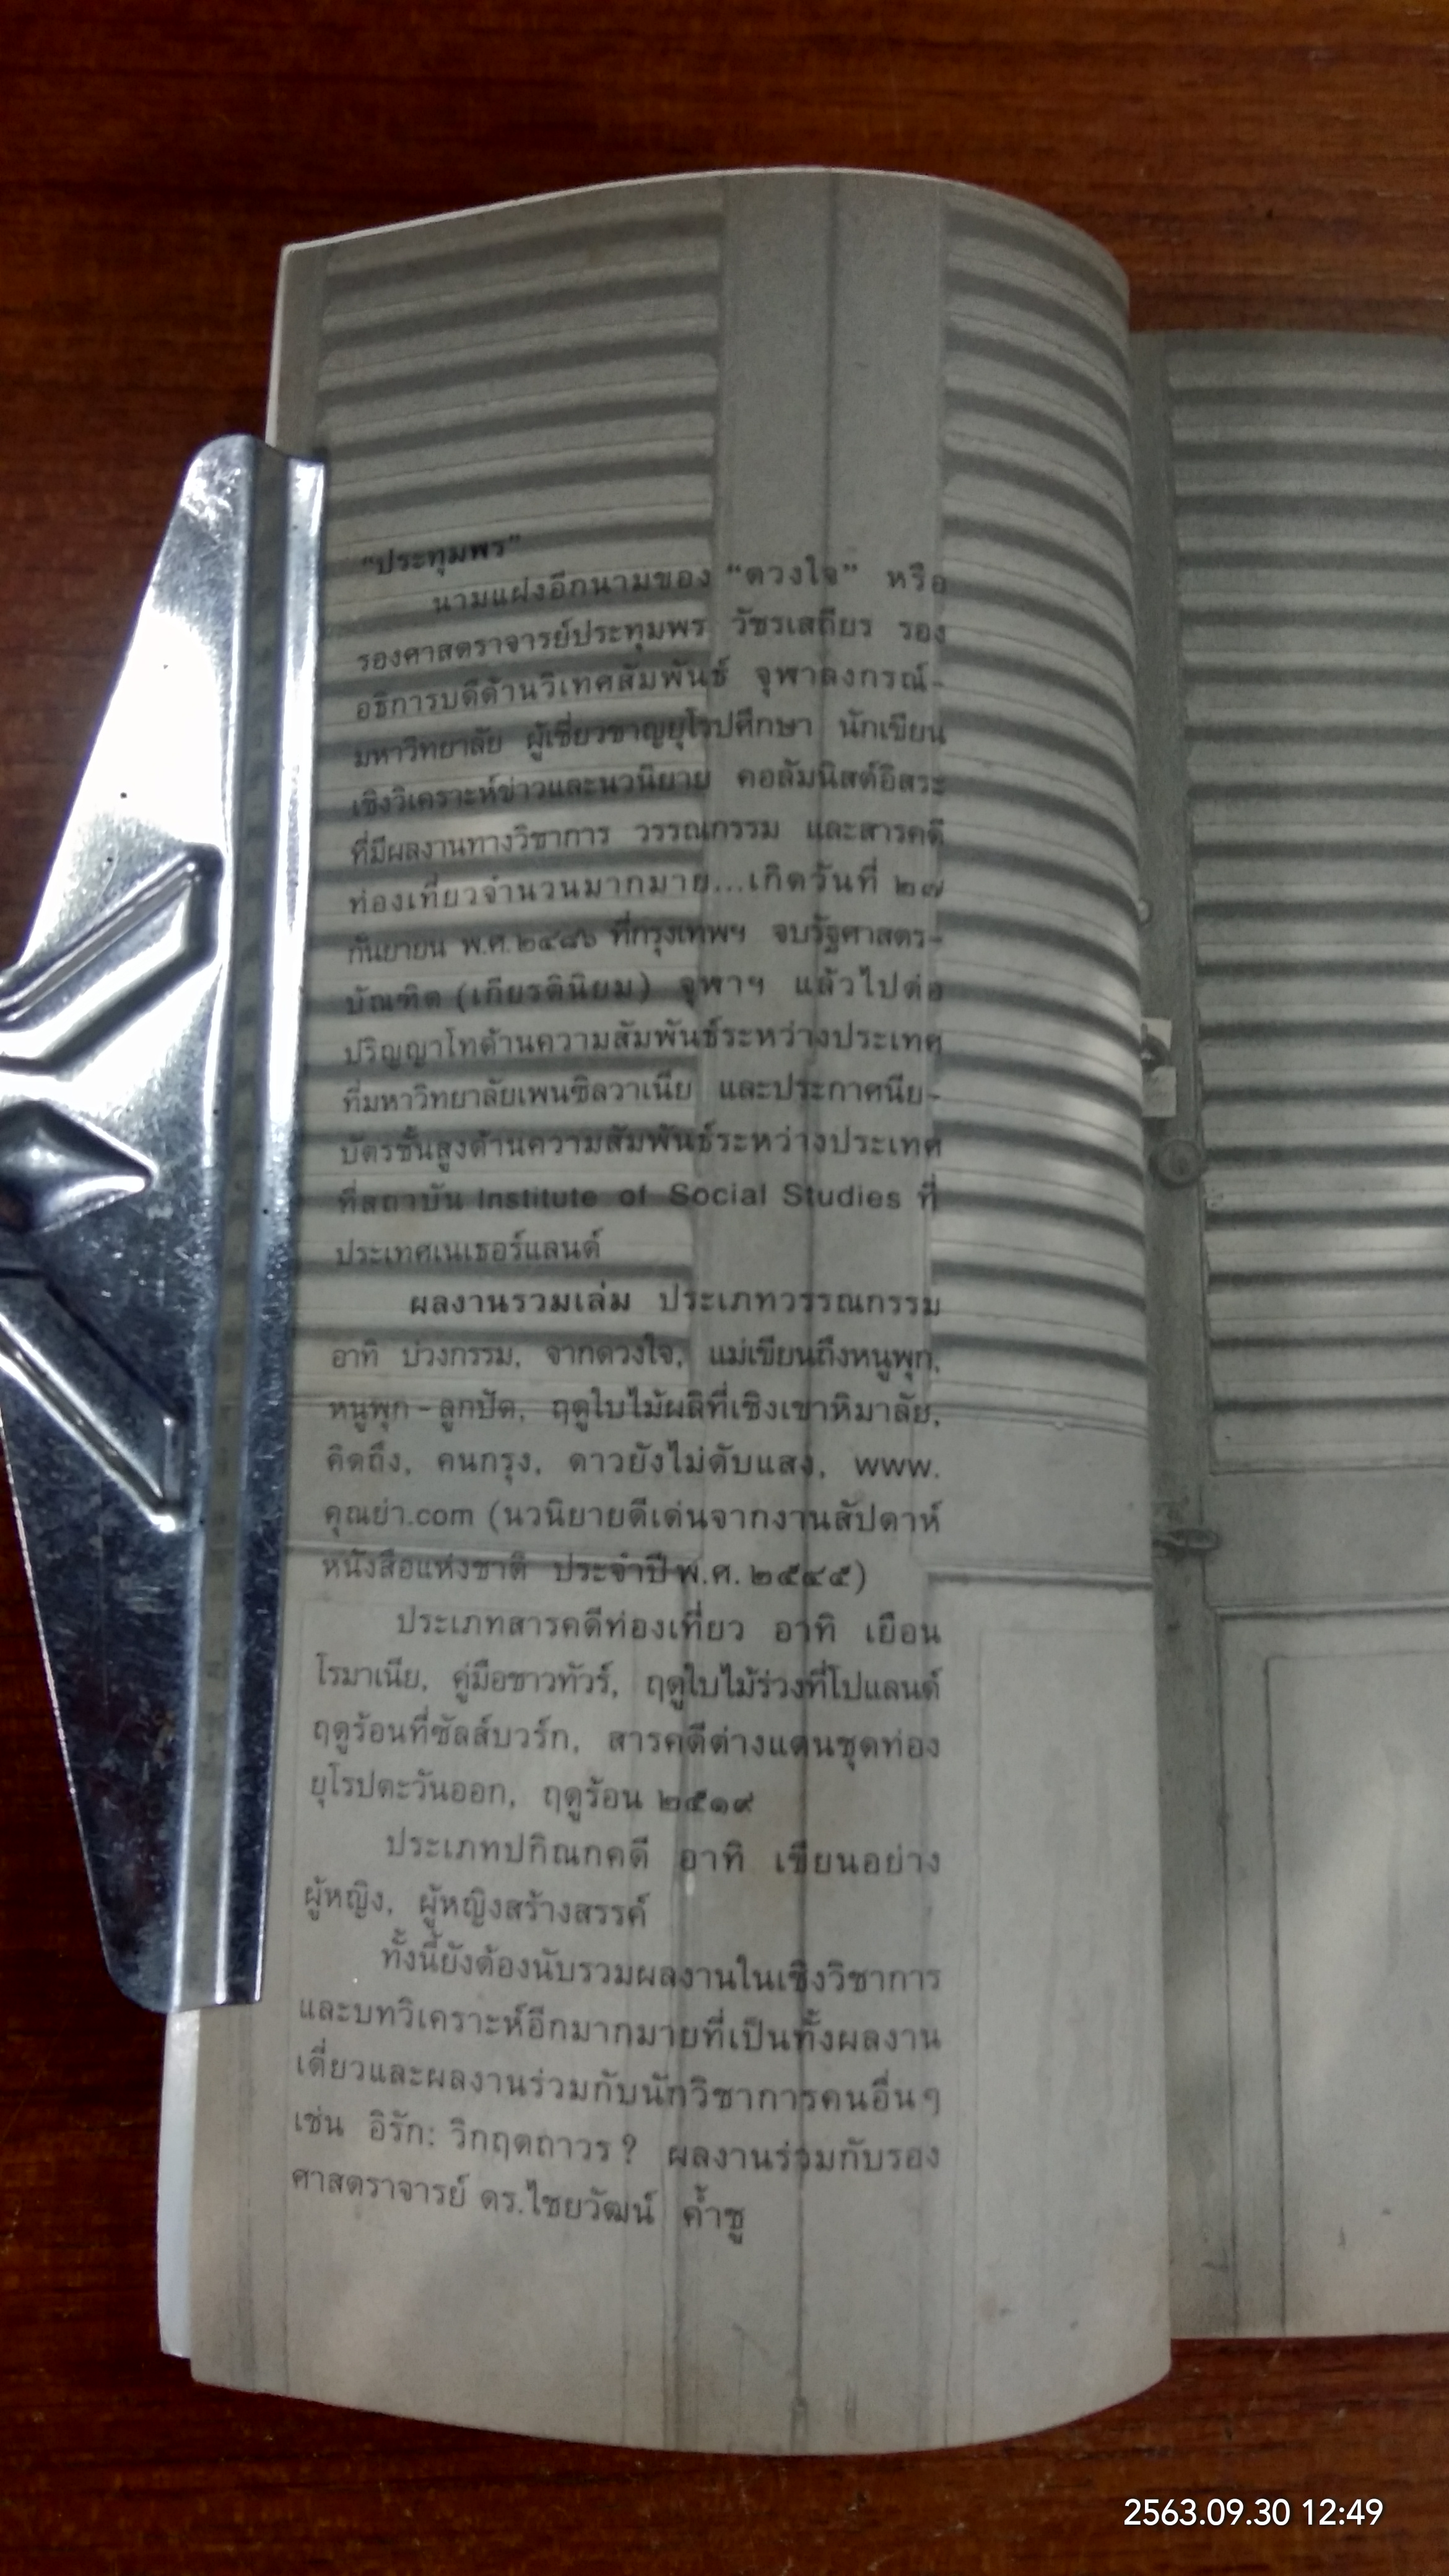 "ประทุมพร"
นามแฝงอีกนามของ "ดวงใจ" หรือ
รองศาสตราจารย์ประทุมพร วัชรเสถียร รอง
อธิการบดีด้านวิเทศสัมพันธ์ จุฬาลงกรณ์-
มหาวิทยาลัย ผู้เชี่ยวชาญยุโรปศึกษา นักเขียน
เชิงวิเคราะห์ข่าวและนวนิยาย คอลัมนิสต์อิสระ
ที่มีผลงานทางวิชาการ วรรณกรรม และสารคดี
ท่องเที่ยวจำนวนมากมาย...เกิดวันที่ ๒๗
กันยายน พ.ศ.๒๔๘๖ ที่กรุงเทพฯ จบรัฐศาสตร-
บัณฑิต (เกียรตินิยม) จุฬาฯ แล้วไปต่อ
ปริญญาโทด้านความสัมพันธ์ระหว่างประเทศ
ที่มหาวิทยาลัยเพนซิลวาเนีย และประกาศนีย-
บัตรชั้นสูงด้านความสัมพันธ์ระหว่างประเทศ
ที่สถาบัน Institute of Social Studies ที่
ประเทศเนเธอร์แลนด์
ผลงานรวมเล่ม ประเภทวรรณกรรม
อาทิ บ่วงกรรม, จากดวงใจ, แม่เขียนถึงหนูพุก,
หนูพุก-ลูกปัด, ฤดูใบไม้ผลิที่เชิงเขาหิมาลัย,
คิดถึง, คนกรุง, ดาวยังไม่ดับแสง, www.
คุณย่า.com (นวนิยายดีเด่นจากงานสัปดาห์
หนังสือแห่งชาติ ประจำปี พ.ศ. ๒๕๔๕)
ประเภทสารคดีท่องเที่ยว อาทิ เยือน
โรมาเนีย, คู่มือชาวทัวร์, ฤดูใบไม้ร่วงที่โปแลนด์
ฤดูร้อนที่ซัลส์บวร์ก, สารคดีต่างแดนชุดท่อง
ยุโรปตะวันออก, ฤดูร้อน ๒๕๑๙
ประเภทปกิณกคดี อาทิ เขียนอย่าง
ผู้หญิง, ผู้หญิงสร้างสรรค์
ทั้งนี้ยังต้องนับรวมผลงานในเชิงวิชาการ
และบทวิเคราะห์อีกมากมายที่เป็นทั้งผลงาน
เดี่ยวและผลงานร่วมกับนักวิชาการคนอื่นๆ
เช่น อิรัก: วิกฤตถาวร? ผลงานร่วมกับรอง
ศาสตราจารย์ ดร.ไชยวัฒน์ ค้ำชู
2563.09.30 12:49